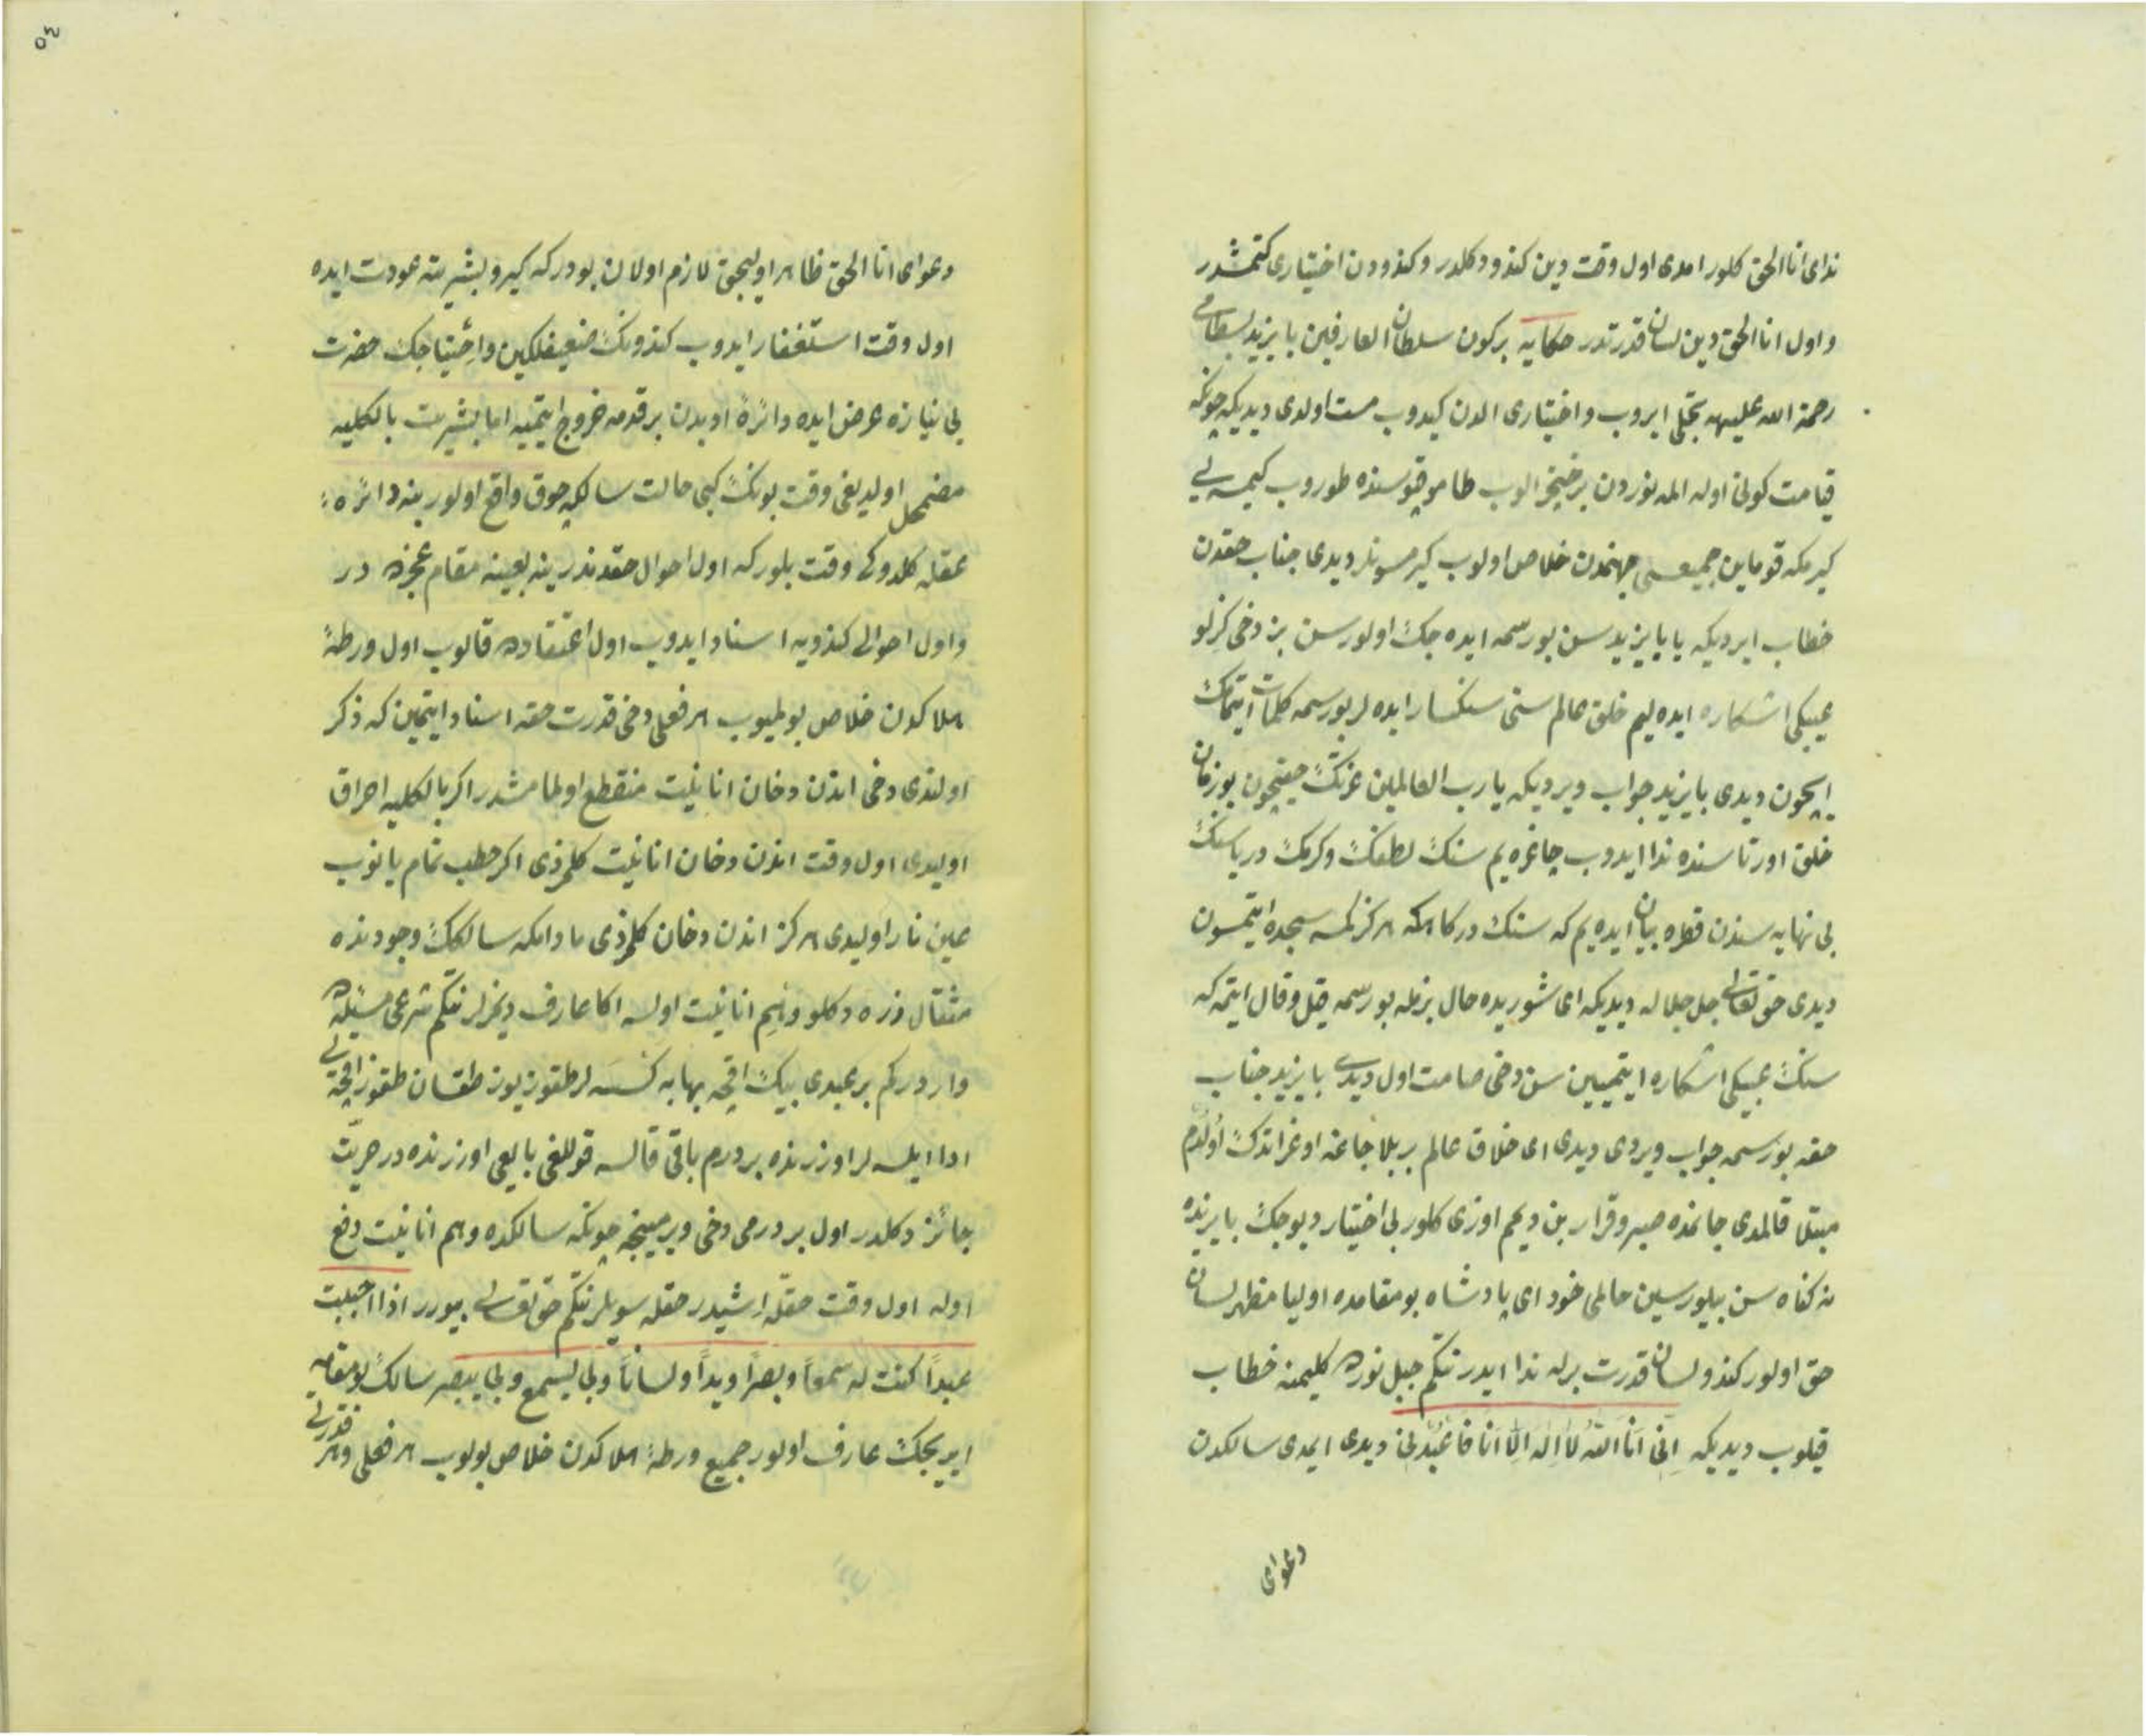 ندای انا الحق کلور امدی اول وقت دین کندو دکلدر و کندودن اختیاری کتمشدر
و اول انا الحق دین لسان قدرتدر حکایه برکون سلطان العارفین بایزید بسطامی
رحمة الله علیهه تجلی ایروب و اختیاری الدن کیدوب مست اولدی دیدیکه چونکه
قیامت کونی اوله المه نوردن بر خنجر الوب طامو قپوسنده طوروب کیمسه یی
کیرمکه قومایین جمیعسی جهنمدن خلاص اولوب کیرمسونلر دیدی جناب حقدن
خطاب ایردیکه یا بایزید سن بو رسمه ایده جک اولورسن بز دخی کزلو
عیبکی اشکاره ایده لیم خلق عالم سنی سنکسار ایده لر بو رسمه کلمات ایتمک
ایچون دیدی بایزید جواب ویردیکه یا رب العالمین عزتک حقیچون بو زمان
خلق اورتاسنده ندا ایدوب چاغره یم سنک لطفک و کرمک دریاسنک
بی نهایه سندن قطره بیان ایده یم که سنک درکاهکه هرکز کمسه سجده ایتمسون
دیدی حق تعالی جل جلاله دیدیکه ای شوریده حال بزمله بو رسمه قیل و قال ایتمه که
سنک عیبکی اشکاره ایتمیین سن دخی صامت اول دیدی بایزید جناب
حقه بو رسمه جواب ویردی دیدی ای خلاق عالم بر بلا جامنه اوغراتدک اولدم
مبتلا قالمدی جانمده صبر و قرار بن دیمم اوزی کلور بی اختیار دیوجک بایزیده
نه کناه سن بیلورسین حالمی خود ای پادشاه بو مقامده اولیا مظهر لسان
حق اولور کندو لسان قدرت برله ندا ایدر نتکم جبل نورده کلیمنه خطاب
قیلوب دیدیکه اِنّی اَنَا اللّهُ لاَ اِلهَ اِلاّ اَنَا فَاعْبُدْنی دیدی ایمدی سالکدن
دعوای
٥٣
دعوای انا الحق ظاهر اولیجق لازم اولان بودرکه کیرو بشریته عودت ایده
اول وقت استغفار ایدوب کندونک ضعیفلکین و احتیاجک حضرت
بی نیازه عرض ایده دائرۀ ادبدن بر قدمه خروج ایتمیه اما بشریت بالکلیه
مضمحل اولدیغی وقت بونک کبی حالت سالکه چوق واقع اولور ینه دائره ء
عقله کلدوکی وقت بلورکه اول احوال حقدندر ینه بعینه مقام عجزده در
و اول احوالی کندویه اسناد ایدوب اول اعتقاده قالوب اول ورطۀ
هلاکدن خلاص بولمیوب هر فعلی دخی قدرت حقه اسناد ایتمین که ذکر
اولندی دخی اندن دخان انانیت منقطع اولمامشدر اکر بالکلیه احراق
اولیدی اول وقت اندن دخان انانیت کلمزدی اکر حطب تمام یانوب
عین نار اولیدی هرکز اندن دخان کلمزدی مادامکه سالکک وجودنده
مثقال ذره دکلو وهم انانیت اولسه اکا عارف دیمزلر نتکم شرعی مسئله ده
واردرکم بر عبدی بیک اقچه بهایه کسسه لر طقوز یوز طقسان طقوز اقچه یی
ادا ایلسه لر اوزرنده بر درم باقی قالسه قوللغی بایعی اوزرنده در حریّت
جائز دکلدر اول بر درمی دخی ویرمینجه چونکه سالکده وهم انانیت دفع
اوله اول وقت حقله اشیدر حقله سویلر نتکم حق تعالی بیورر اذا احببت
عبداً کنت له سمعاً و بصراً و یداً و لساناً و بی یسمع و بی یبصر سالک بو مقامه
ایریجک عارف اولور جمیع ورطۀ هلاکدن خلاص بولوب هر فعلی و هر قدرتی